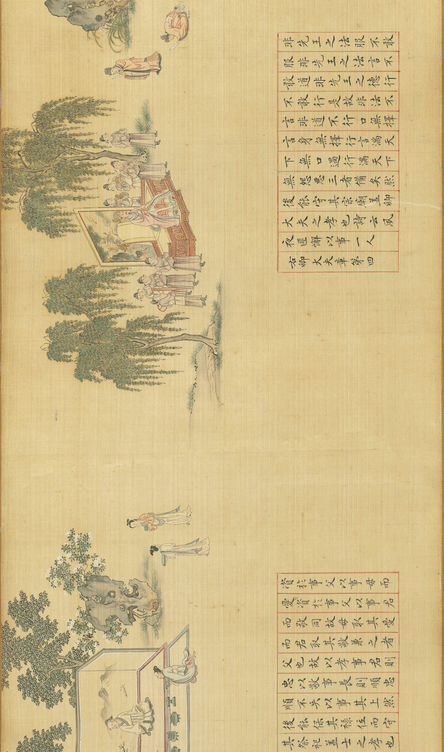 非先王之法服不敢
服非先王之法言不
敢道非先王之德行
不敢行是故非法不
言非道不行口無擇
言身無擇行言滿天
下無口過行滿天下
無怨惡三者備矣然
後能守其宗廟蓋卿
大夫之孝也詩云夙
夜匪懈以事一人
右卿大夫章第四
資於事父以事母而
愛資於事父以事君
而敬同故母取其愛
而君取其敬兼之者
父也故以孝事君則
忠以敬事長則順忠
順不失以事其上然
後能保其祿位而守
其祭祀蓋士之孝也